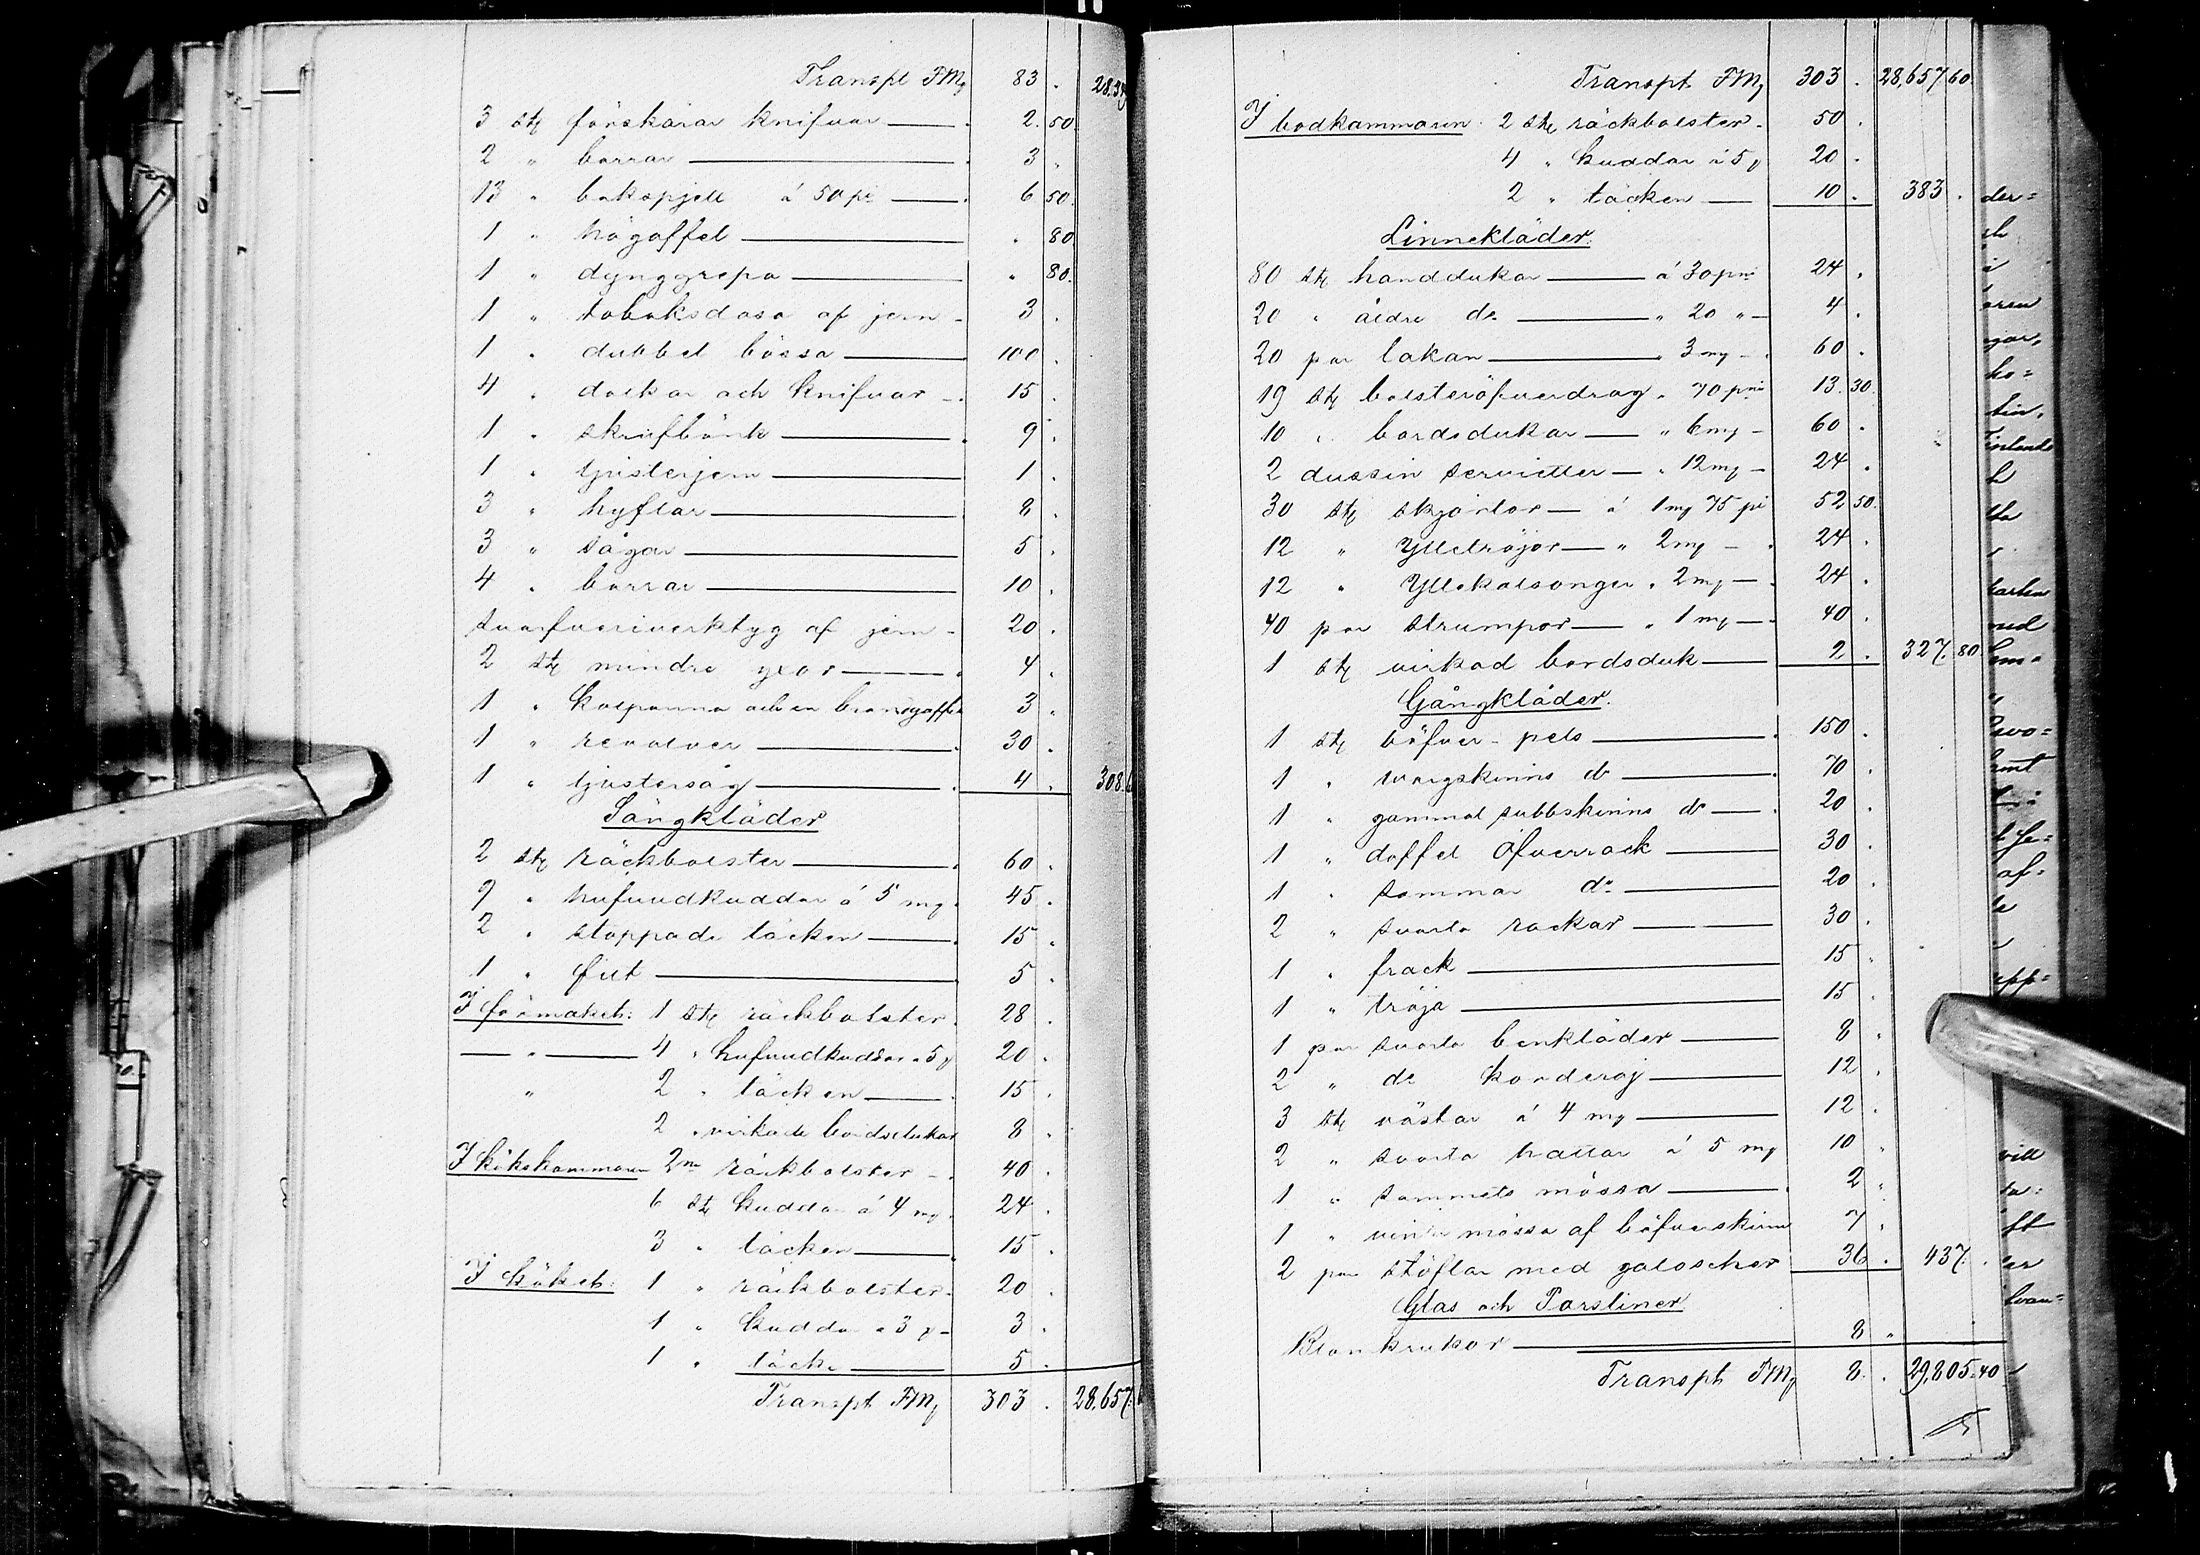 Transpt FMg 83 . 28,34
3 stg förskärar knifvar — 2. 50.
2 " borrar — 3 .
13 " bakspjell á 50 pi — 6 50.
1 " högaffel — . 80.
1 " dynggrepa — " 80.
1 " tobaksdosa af jern - 3 .
1 " dubbel bössa — 100 .
4 " dolkar och knifvar - 15 .
1 " skrufbänk — 9 .
1 " ljusterjern — 1 .
3 " hyflar — 8 .
3 " sågar — 5 .
4 " borrar — 10 .
Svarfveriverktyg af jern - 20 .
2 stg mindre yxor — 4 .
1 " kolpanna och en brandgaffel 3 .
1 " revolver — 30 .
1 " ljustersåg — 4 . 308.6
Sängkläder
2 stg räckbolster — 60 .
9 " hufvudkuddar á 5 mg. 45 .
2 " stoppade täcken — 15 .
1 " filt — 5 .
I förmaket: 1 stg räckbolster. 28 .
— " — 4 " hufvudkuddar " 5 g 20 .
" 2 " täcken — 15 .
2 " virkade bordsdukar 8 .
I kökskammaren 2 ne räckbolster - 40 .
6 stg kuddar á 4 mg. 24 .
3 " täcken — 15 .
I köket: 1 " räckbolster. 20 .
1 " kudda " 3 g - 3 .
1 " täcke — 5 .
Transpt FMg 303 . 28,657. 6
Transpt FMg 303 . 28,657 60
I bodkammaren 2 stg räckbolster. 50 .
4 " kuddar á 5 g 20 .
2 " täcken — 10 . 383 .
Linnekläder.
80 stg handdukar — á 30 pni 24 .
20 " äldre do — " 20 " — 4 .
20 par lakan — " 3 mg - 60 .
19 stg bolsteröfverdrag " 70 pni 13. 30.
10 " bordsdukar — " 6 mg - 60 .
2 dussin servietter — " 12 mg - 24 .
30 stg skjortor — á 1 mg 75 pi 52 50.
12 " Ylletröjor — " 2 mg - 24 .
12 " Yllekalsonger " 2 mg — 24 .
40 par strumpor — " 1 mg — 40 .
1 stg virkad bordsduk — 2 . 327. 80
Gångkläder.
1 stg böfver-pels — 150 .
1 " vargskinns do — 70 .
1 " gammal subbskinns do — 20 .
1 " doffel öfverrock — 30 .
1 " sommar do — 20 .
2 " svarta rockar — 30 .
1 " frack — 15 .
1 " tröja — 15 .
1 par svarta benkläder — 8 .
2 " do korderoj — 12 .
3 stg västar á 4 mg — 12 .
2 " svarta hattar á 5 mg 10 .
1 " sammets mössa — 2 .
1 " vinter mössa af böfverskinn 7 .
2 par stöflar med galoscher 36 . 437. .
Glas och Porsliner
Blomkrukor — 8 .
Transpt FMg 8. . 29,805. 40